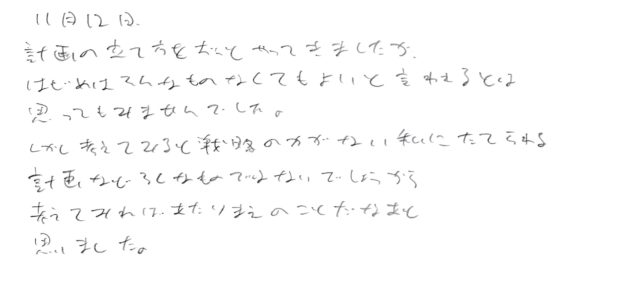 11月12日.
計画の立て方をずっとやってきましたが.
はじめはそんなものなくてもよいと言われるとは
思ってもみませんでした。
しかし考えてみると戦略のカがない私にたてられる
計画などろくなものではないでしょうから
考えてみればあたりまえのことだなあと
思いました。